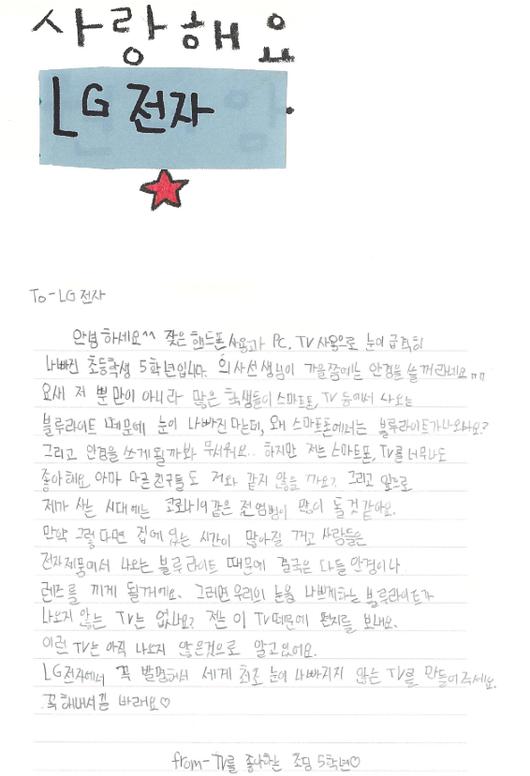 사랑해요
LG 전자
To-LG 전자
안녕하세요^^ 잦은 핸드폰 사용과 PC, TV 사용으로 눈이 급격히
나빠진 초등학생 5학년입니다. 의사선생님이 가을쯤에는 안경을 쓸꺼라네요ㅠㅠ
요새 저 뿐만이 아니라 많은 학생들이 스마트폰, TV 등에서 나오는
블루라이트 때문에 눈이 나빠진다는데, 왜 스마트폰에서는 블루라이트가나오나요?
그리고 안경을 쓰게 될까봐 무서워요.. 하지만 저는 스마트폰, TV를 너무나도
좋아해요. 아마 다른친구들도 저와 같지 않을까요? 그리고 앞으로
제가 사는 시대에는 코로나19같은 전염병이 많이 돌것같아요.
만약 그렇다면 집에 있는 시간이 많아질 꺼고 사람들은
전자제품에서 나오는 블루라이트 때문에 결국은 다들 안경이나
렌즈를 끼게 될거에요. 그러면 우리의 눈을 나쁘게하는 블루라이트가
나오지 않는 TV는 없나요? 저는 이 TV때문에 편지를 보내요.
이런 TV는 아직 나오지 않은것으로 알고있어요.
LG전자에서 꼭 발명해서 세계 최초 눈이 나빠지지 않는 TV를 만들어주세요.
꼭 해내시길 바래요♡
from-TV를 좋아하는 초딩 5학년♡